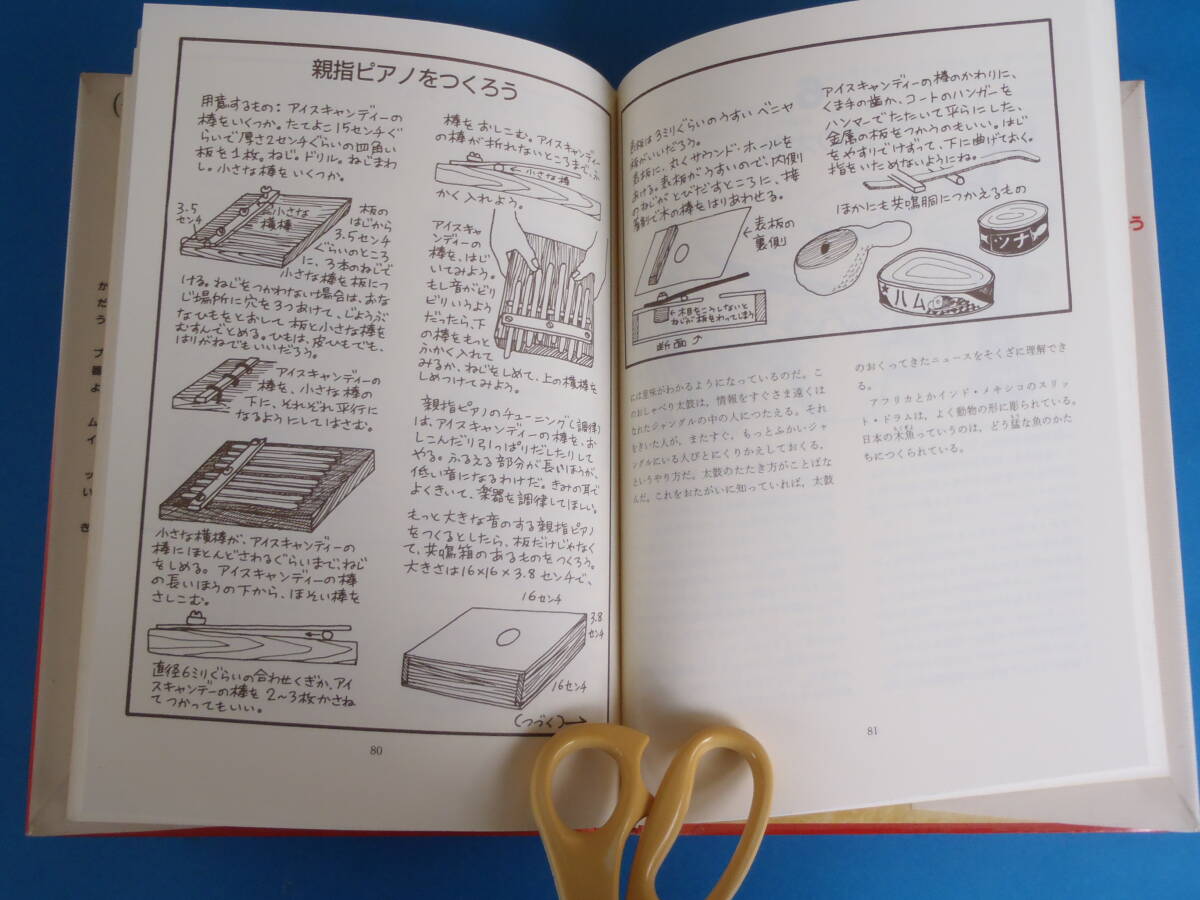 親指ピアノをつくろう
用意するもの：アイスキャンディーの
棒をいくつか。たてよこ15センチぐ
らいで厚さ2センチぐらいの四角い
板を1枚。ねじ。ドリル。ねじまわ
し。小さな棒をいくつか。
3.5
センチ
小さな
横棒
板の
はじから
3.5センチ
ぐらいのところ
に、3本のねじで
小さな棒を板につ
ける。ねじをつかわない場合は、おな
じ場所に穴を3つあけて、じょうぶ
なひもをとおして板と小さな棒を
むすんでとめる。ひもは、皮ひもでも、
はりがねでもいいだろう。
アイスキャンディーの
棒を、小さな棒の
下に、それぞれ平行に
なるようにしてはさむ。
小さな横棒が、アイスキャンディーの
棒にほとんどさわるぐらいまで、ねじ
をしめる。アイスキャンディーの棒
の長いほうの下から、ほそい棒を
さしこむ。
直径6ミリぐらいの合わせくぎか、アイ
スキャンデーの棒を2〜3枚かさね
てつかってもいい。
棒をおしこむ。アイスキャンディー
の棒が折れないところまで、ふ
←小さな棒
かく入れよう。
アイスキャ
ンディーの
棒を、はじ
いてみよう。
もし音がビリ
ビリいうよう
だったら、下
の棒をもっと
ふかく入れて
みるか、ねじをしめて、上の横棒を
しめつけてみよう。
親指ピアノのチューニング(調律)
は、アイスキャンディーの棒を、お
しこんだり引っぱりだしたりして
やる。ふるえる部分が長いほうが、
低い音になるわけだ。きみの耳で
よくきいて、楽器を調律してほしい。
もっと大きな音のする親指ピアノ
をつくるとしたら、板だけじゃなく
て、共鳴箱のあるものをつくろう。
大きさは16×16×3.8センチで、
16センチ
3.8
センチ
16センチ
(つづく)→
80
表板は3ミリぐらいのうすいベニヤ
板がいいだろう。
表板に、丸くサウンド・ホールを
あける。表板がうすいので、内側
のねじがとびだすところに、接
着剤で木の棒をはりあわせる。
←表板の
裏側
←木目をこうしないと
ねじが板をわってしまう
断面↗
アイスキャンディーの棒のかわりに、
くま手の歯か、コートのハンガーを
ハンマーでたたいて平らにした、
金属の板をつかうのもいい。はじ
をやすりでけずって、下に曲げておく。
指をいためないようにね。
ほかにも共鳴胴につかえるもの
ツナ
ハム
には意味がわかるようになっているのだ。こ
のおしゃべり太鼓は、情報をすぐさま遠くは
なれたジャングルの中の人につたえる。それ
をきいた人が、またすぐ、もっとふかいジャ
ングルにいる人びとにくりかえしておくる、
というやり方だ。太鼓のたたき方がことばな
んだ。これをおたがいに知っていれば、太鼓
のおくってきたニュースをそくざに理解でき
る。
アフリカとかインド・メキシコのスリッ
ト・ドラムは、よく動物の形に彫られている。
日本の木魚っていうのは、どう猛な魚のかた
ちにつくられている。
81